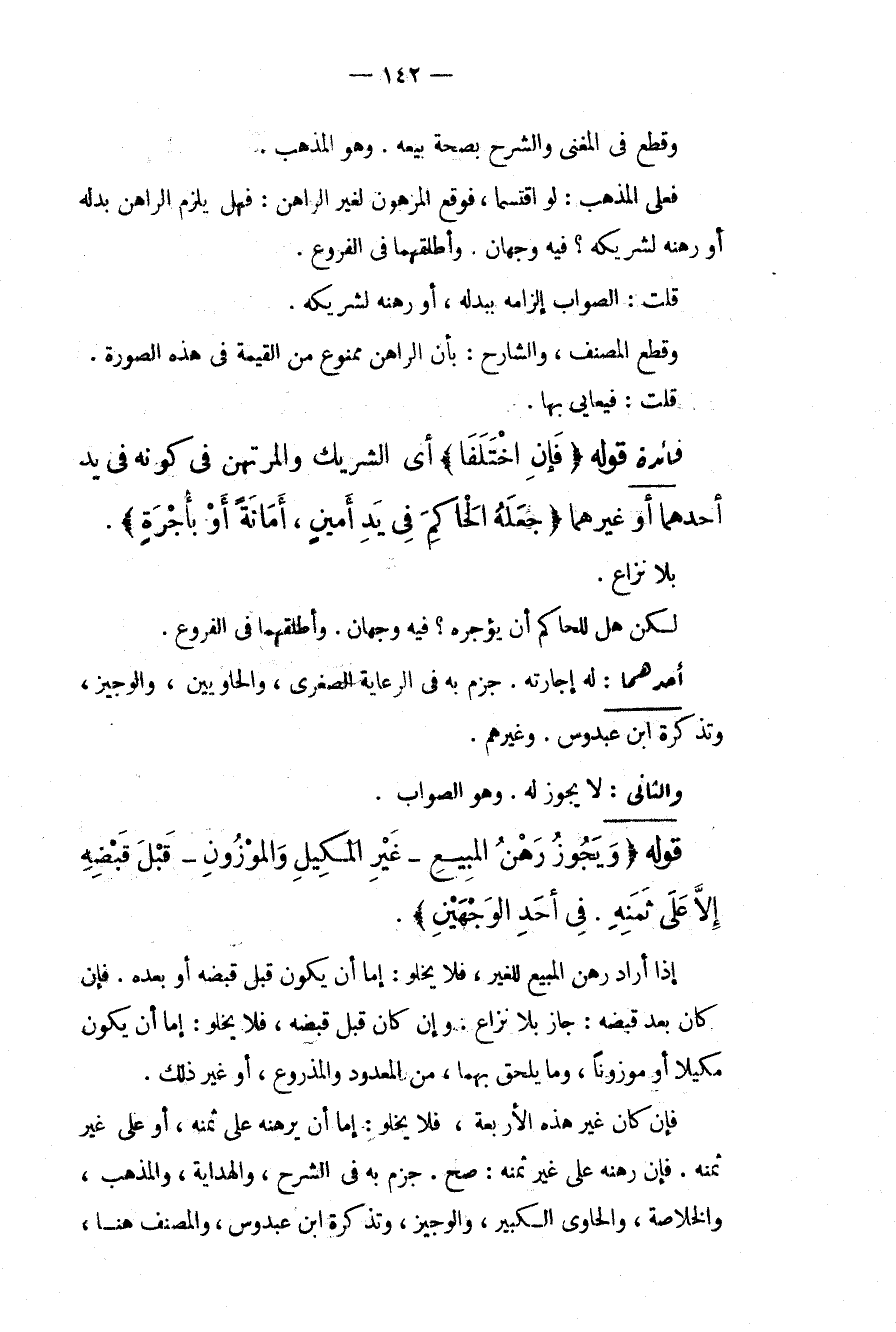 — ١٤٢ —
وقطع فى المغنى والشرح بصحة بيعه . وهو المذهب .
فعلى المذهب : لو اقتسما ، فوقع المرهون لغير الراهن : فهل يلزم الراهن بدله
أو رهنه لشريكه ؟ فيه وجهان . وأطلقهما فى الفروع .
قلت : الصواب إلزامه ببدله ، أو رهنه لشريكه .
وقطع المصنف ، والشارح : بأن الراهن ممنوع من القيمة فى هذه الصورة .
قلت : فيعايى بها .
فائدة قوله ﴿ فَإِنِ اخْتَلَفَا ﴾ أى الشريك والمرتهن فى كونه فى يد
أحدهما أو غيرهما ﴿ جَعَلَهُ الْحَاكِمَ فِى يَدِ أَمينٍ ، أَمَانَةً أَوْ بأُجْرَةٍ ﴾ .
بلا نزاع .
لـكن هل للحاكم أن يؤجره ؟ فيه وجهان . وأطلقهما فى الفروع .
أحدهما : له إجارته . جزم به فى الرعاية الصغرى ، والحاويين ، والوجيز ،
وتذكرة ابن عبدوس . وغيرهم .
والثانى : لا يجوز له . وهو الصواب .
قوله ﴿ وَيَجُوزُ رَهْنُ المَبِيعِ ـ غَيْرِ المَـكِيلِ وَالموْزُونِ ـ قَبْلَ قَبْضِهِ
إِلاَّ عَلَى ثَمَنِهِ . فِى أحَدِ الوَجْهَيْنِ ﴾ .
إذا أراد رهن المبيع للغير ، فلا يخلو : إما أن يكون قبل قبضه أو بعده . فإن
كان بعد قبضه : جاز بلا نزاع . وإن كان قبل قبضه ، فلا يخلو : إما أن يكون
مكيلا أو موزوناً ، وما يلحق بهما ، من المعدود والمذروع ، أو غير ذلك .
فإن كان غير هذه الأربعة ، فلا يخلو : إما أن يرهنه على ثمنه ، أو على غير
ثمنه . فإن رهنه على غير ثمنه : صح . جزم به فى الشرح ، والهداية ، والمذهب ،
والخلاصة ، والحاوى الـكبير ، والوجيز ، وتذكرة ابن عبدوس ، والمصنف هنـا ،